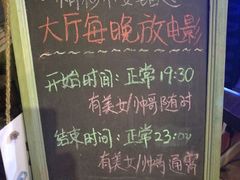 大厅每晚放电影
开始时间：正常19:30
有美女/帅哥随时
结束时间：正常23:00
有美女/帅哥通宵